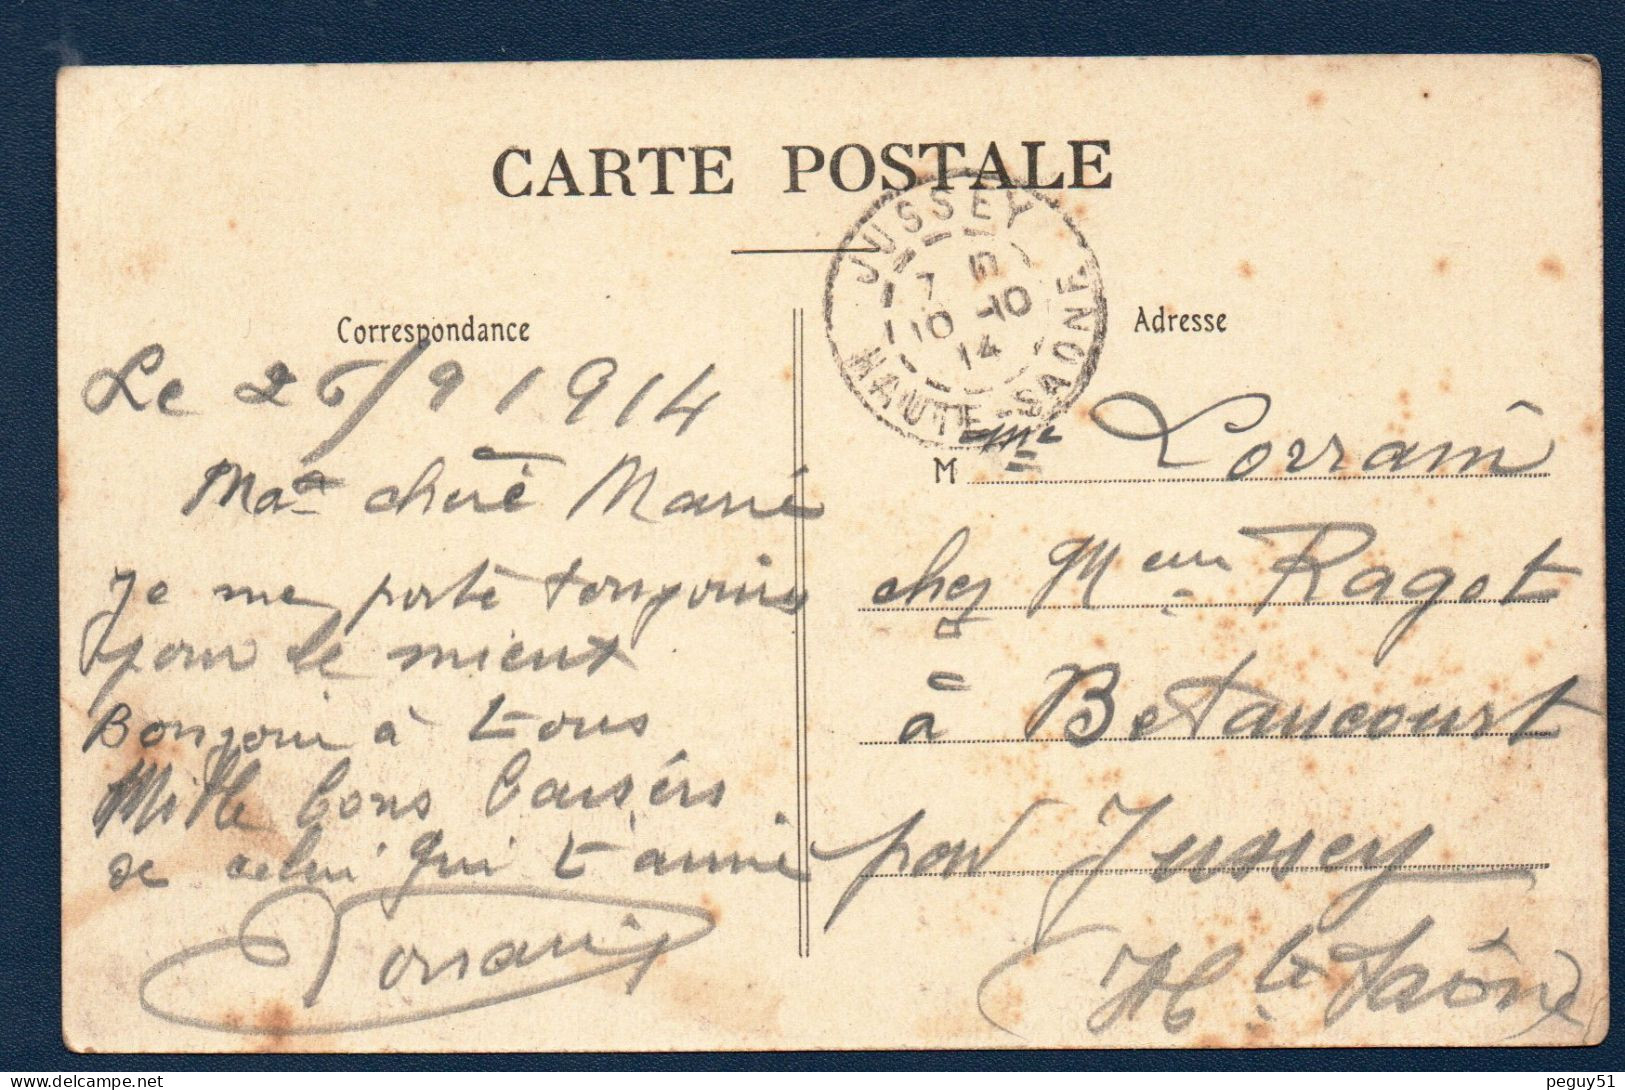 CARTE POSTALE
JUSSEY
7 E
10 -10
14
HAUTE-SAONE
Correspondance
Le 26/9 1914
Ma chère Marie
Je me porte toujours
pour le mieux
Bonjour à tous
Mille bons baisers
de celui qui t'aime
Lorrain
Adresse
M me Lorrain
chez Meur Ragot
à Betaucourt
par Jussey
(Hte Saône)
peguy51
delcampe.net